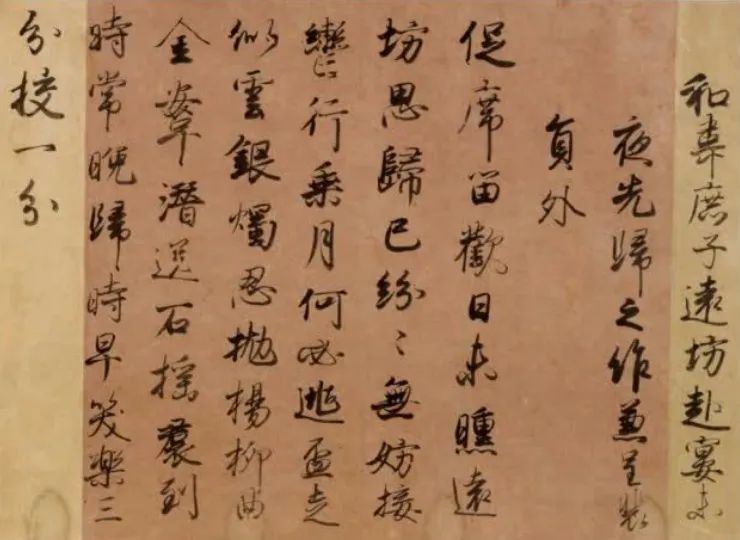 和韋庶子遠坊赴宴未
夜先歸之作兼呈裴
員外
促席留歡日未曛遠
坊思歸已紛〻無妨按
轡行乘月何必逃盃走
似雲銀燭忍拋楊柳曲
金鞍潛送石榴裙到
時常晚歸時早笑樂三
分校一分